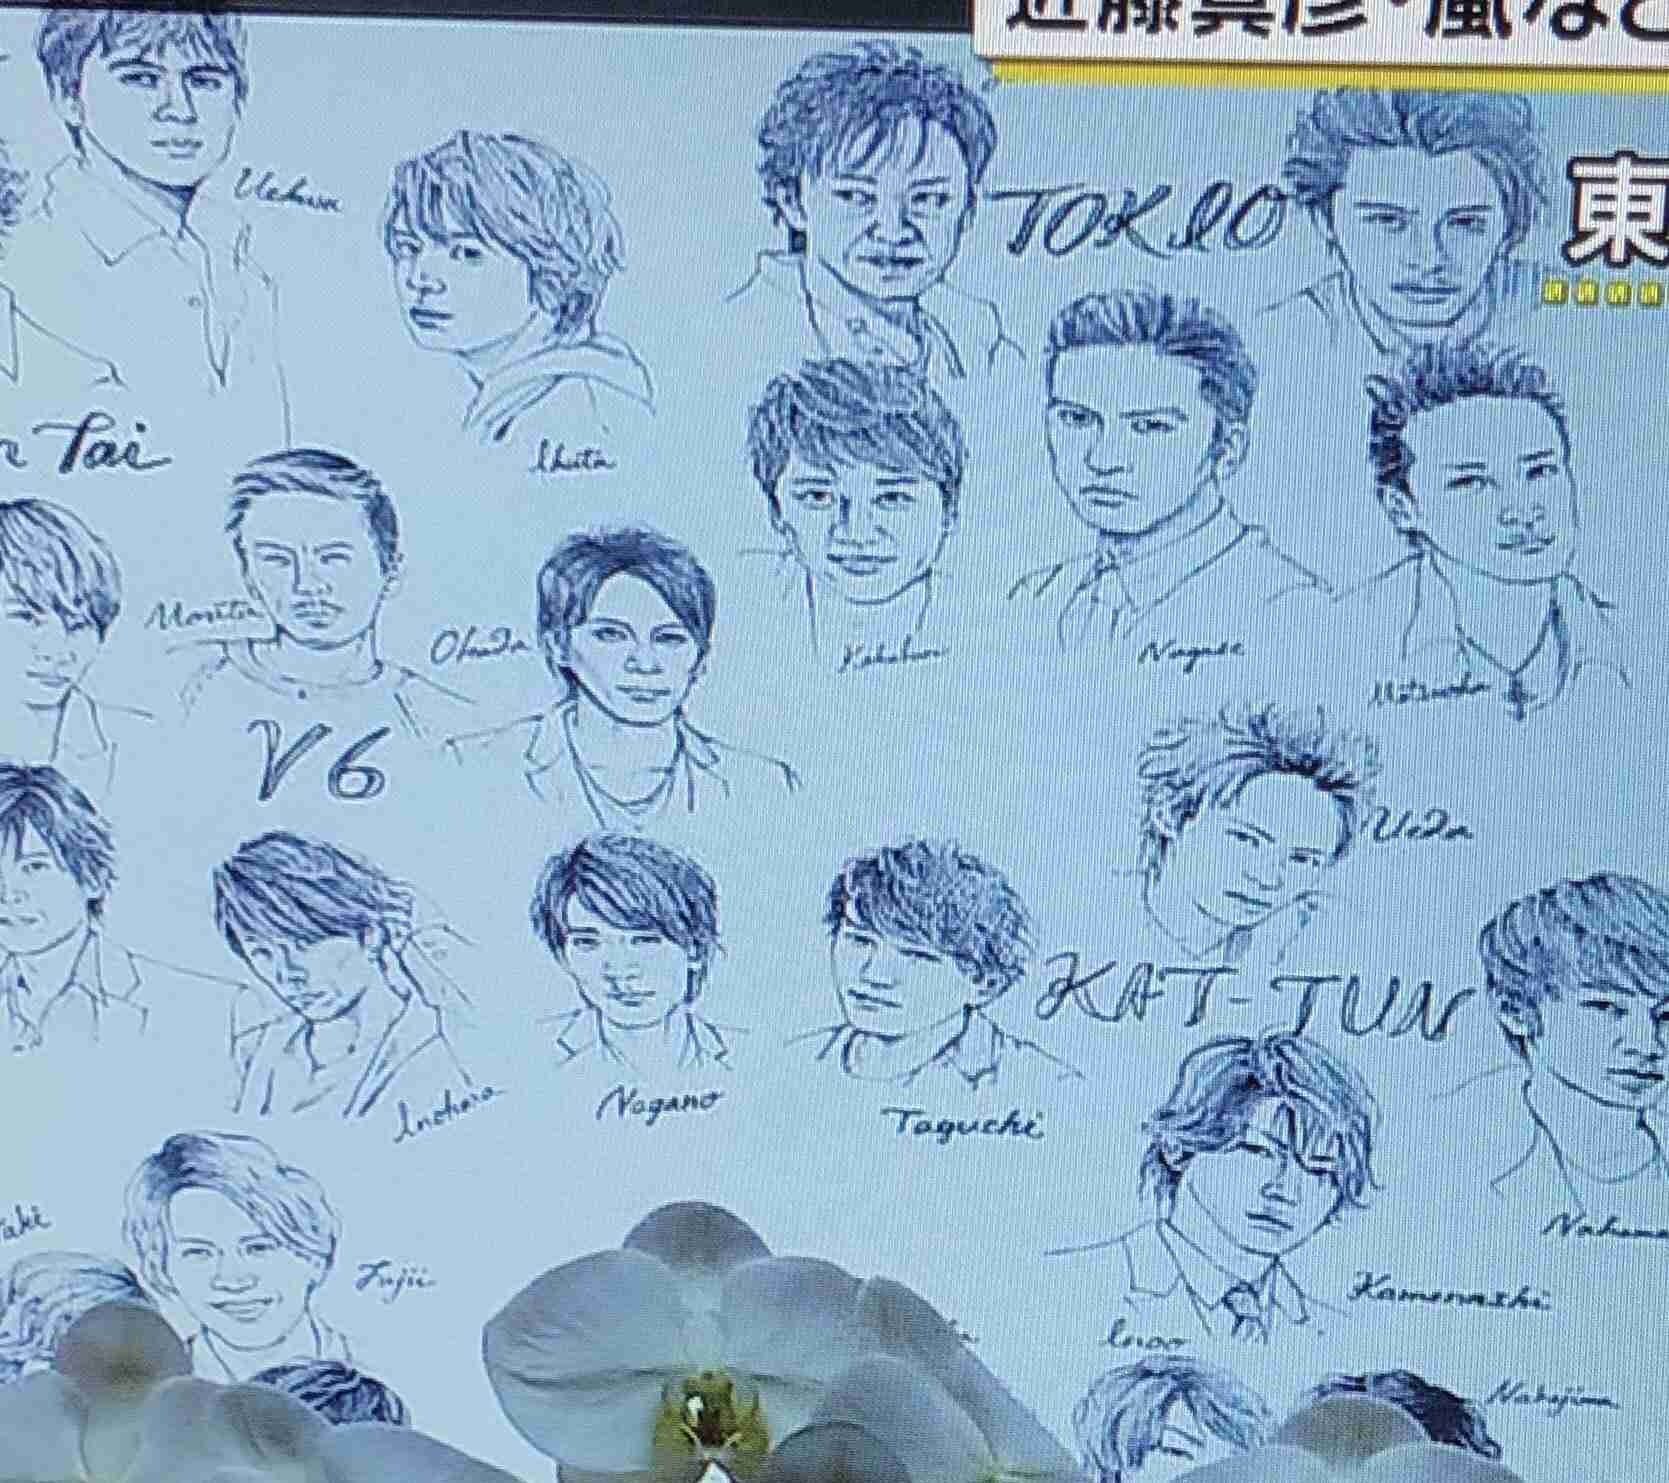 近藤真彦・嵐など
東
TOKIO
Ikuta
Tai
Morita
Okada
Nagase
Matsuoka
V6
Ueda
KAT-TUN
Inohara
Nagano
Taguchi
Fujii
Kamenashi
Inoo
Nakajima